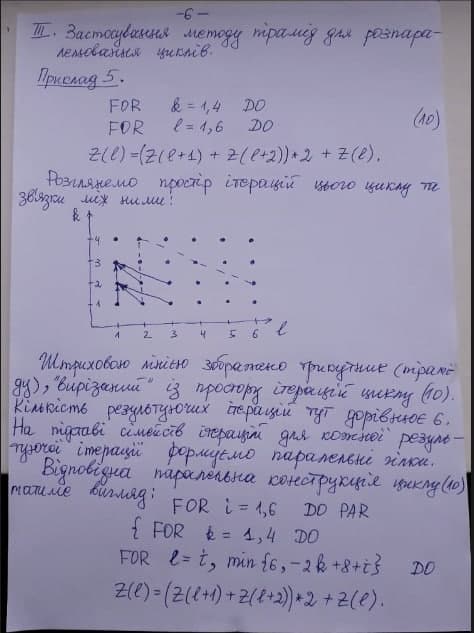 -6-
III. Застосування методу пірамід для розпара-
лелювання циклів.
Приклад 5.
FOR k = 1,4 DO
FOR l = 1,6 DO (10)
Z(l) = (Z(l+1) + Z(l+2))*2 + Z(l).
Розглянемо простір ітерацій цього циклу та
зв'язки між ними:
k
4
3
2
1
1 2 3 4 5 6 l
Штриховою лінією зображено трикутник (пірамі-
ду), "вирізаний" із простору ітерацій циклу (10).
Кількість результуючих ітерацій тут дорівнює 6.
На підставі сімейств ітерацій для кожної резуль-
туючої ітерації формуємо паралельні гілки.
Відповідна паралельна конструкція циклу (10)
матиме вигляд:
FOR i = 1,6 DO PAR
{ FOR k = 1,4 DO
FOR l = i, min{6, -2k+8+i} DO
Z(l) = (Z(l+1) + Z(l+2))*2 + Z(l).